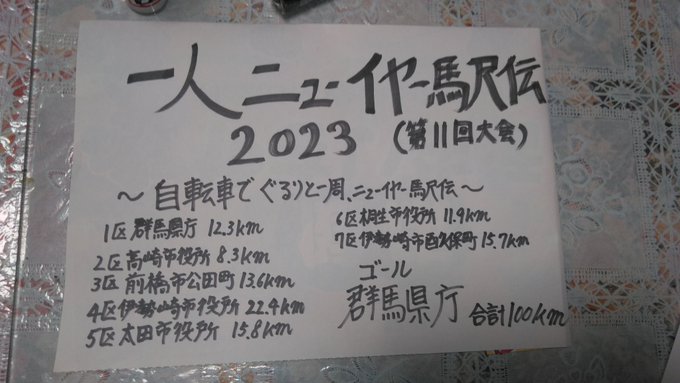 一人ニューイヤー駅伝
2023 (第11回大会)
～自転車でぐるりと一周、ニューイヤー駅伝～
1区群馬県庁 12.3km
2区高崎市役所 8.3km
3区前橋市公田町13.6km
4区伊勢崎市役所 22.4km
5区太田市役所 15.8km
6区桐生市役所 11.9km
7区伊勢崎市西久保町 15.7km
ゴール
群馬県庁 合計100km